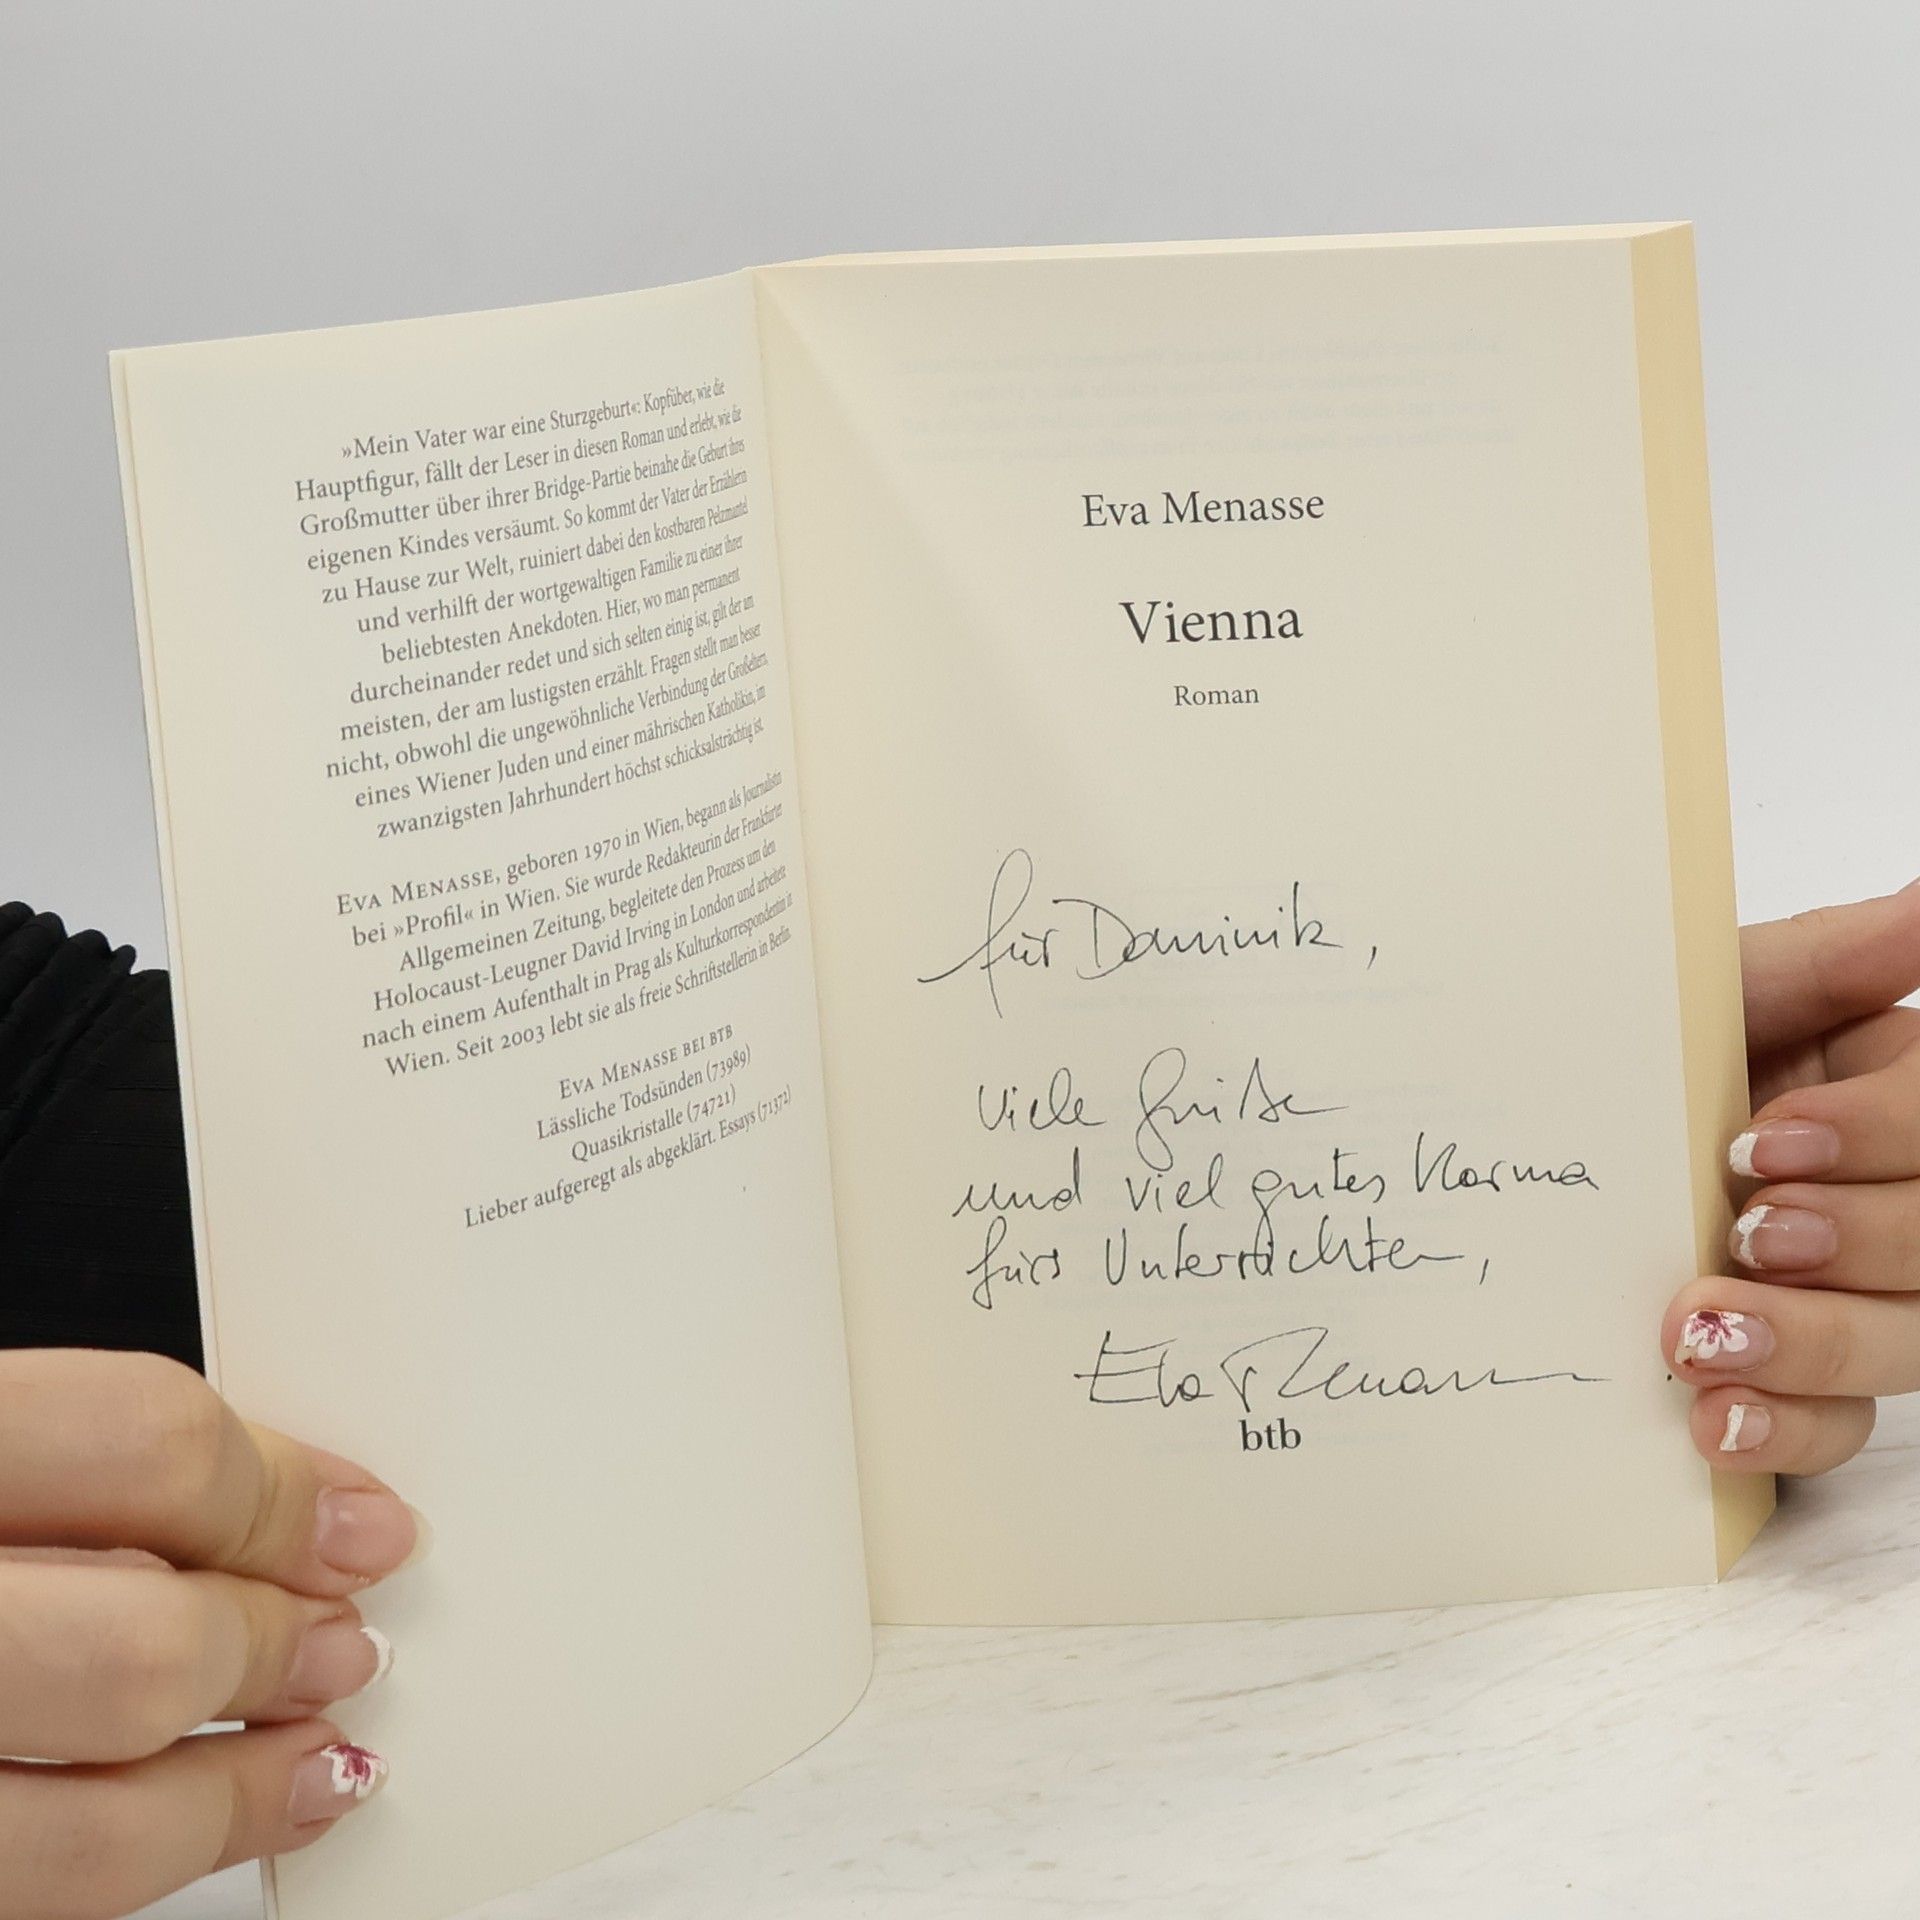 »Mein Vater war eine Sturzgeburt«: Kopfüber, wie die
Hauptfigur, fällt der Leser in diesen Roman und erlebt, wie die
Großmutter über ihrer Bridge-Partie beinahe die Geburt ihres
eigenen Kindes versäumt. So kommt der Vater der Erzählerin
zu Hause zur Welt, ruiniert dabei den kostbaren Pelzmantel
und verhilft der wortgewaltigen Familie zu einer ihrer
beliebtesten Anekdoten. Hier, wo man permanent
durcheinander redet und sich selten einig ist, gilt der am
meisten, der am lustigsten erzählt. Fragen stellt man besser
nicht, obwohl die ungewöhnliche Verbindung der Großeltern,
eines Wiener Juden und einer mährischen Katholikin, im
zwanzigsten Jahrhundert höchst schicksalsträchtig ist.
EVA MENASSE, geboren 1970 in Wien, begann als Journalistin
bei »Profil« in Wien. Sie wurde Redakteurin der Frankfurter
Allgemeinen Zeitung, begleitete den Prozess um den
Holocaust-Leugner David Irving in London und arbeitete
nach einem Aufenthalt in Prag als Kulturkorrespondentin in
Wien. Seit 2003 lebt sie als freie Schriftstellerin in Berlin.
EVA MENASSE BEI BTB
Lässliche Todsünden (73989)
Quasikristalle (74721)
Lieber aufgeregt als abgeklärt. Essays (71372)
Eva Menasse
Vienna
Roman
für Dominik,
Viele Grüße
und viel gutes Karma
fürs Unterrichten,
Eva Menasse
btb